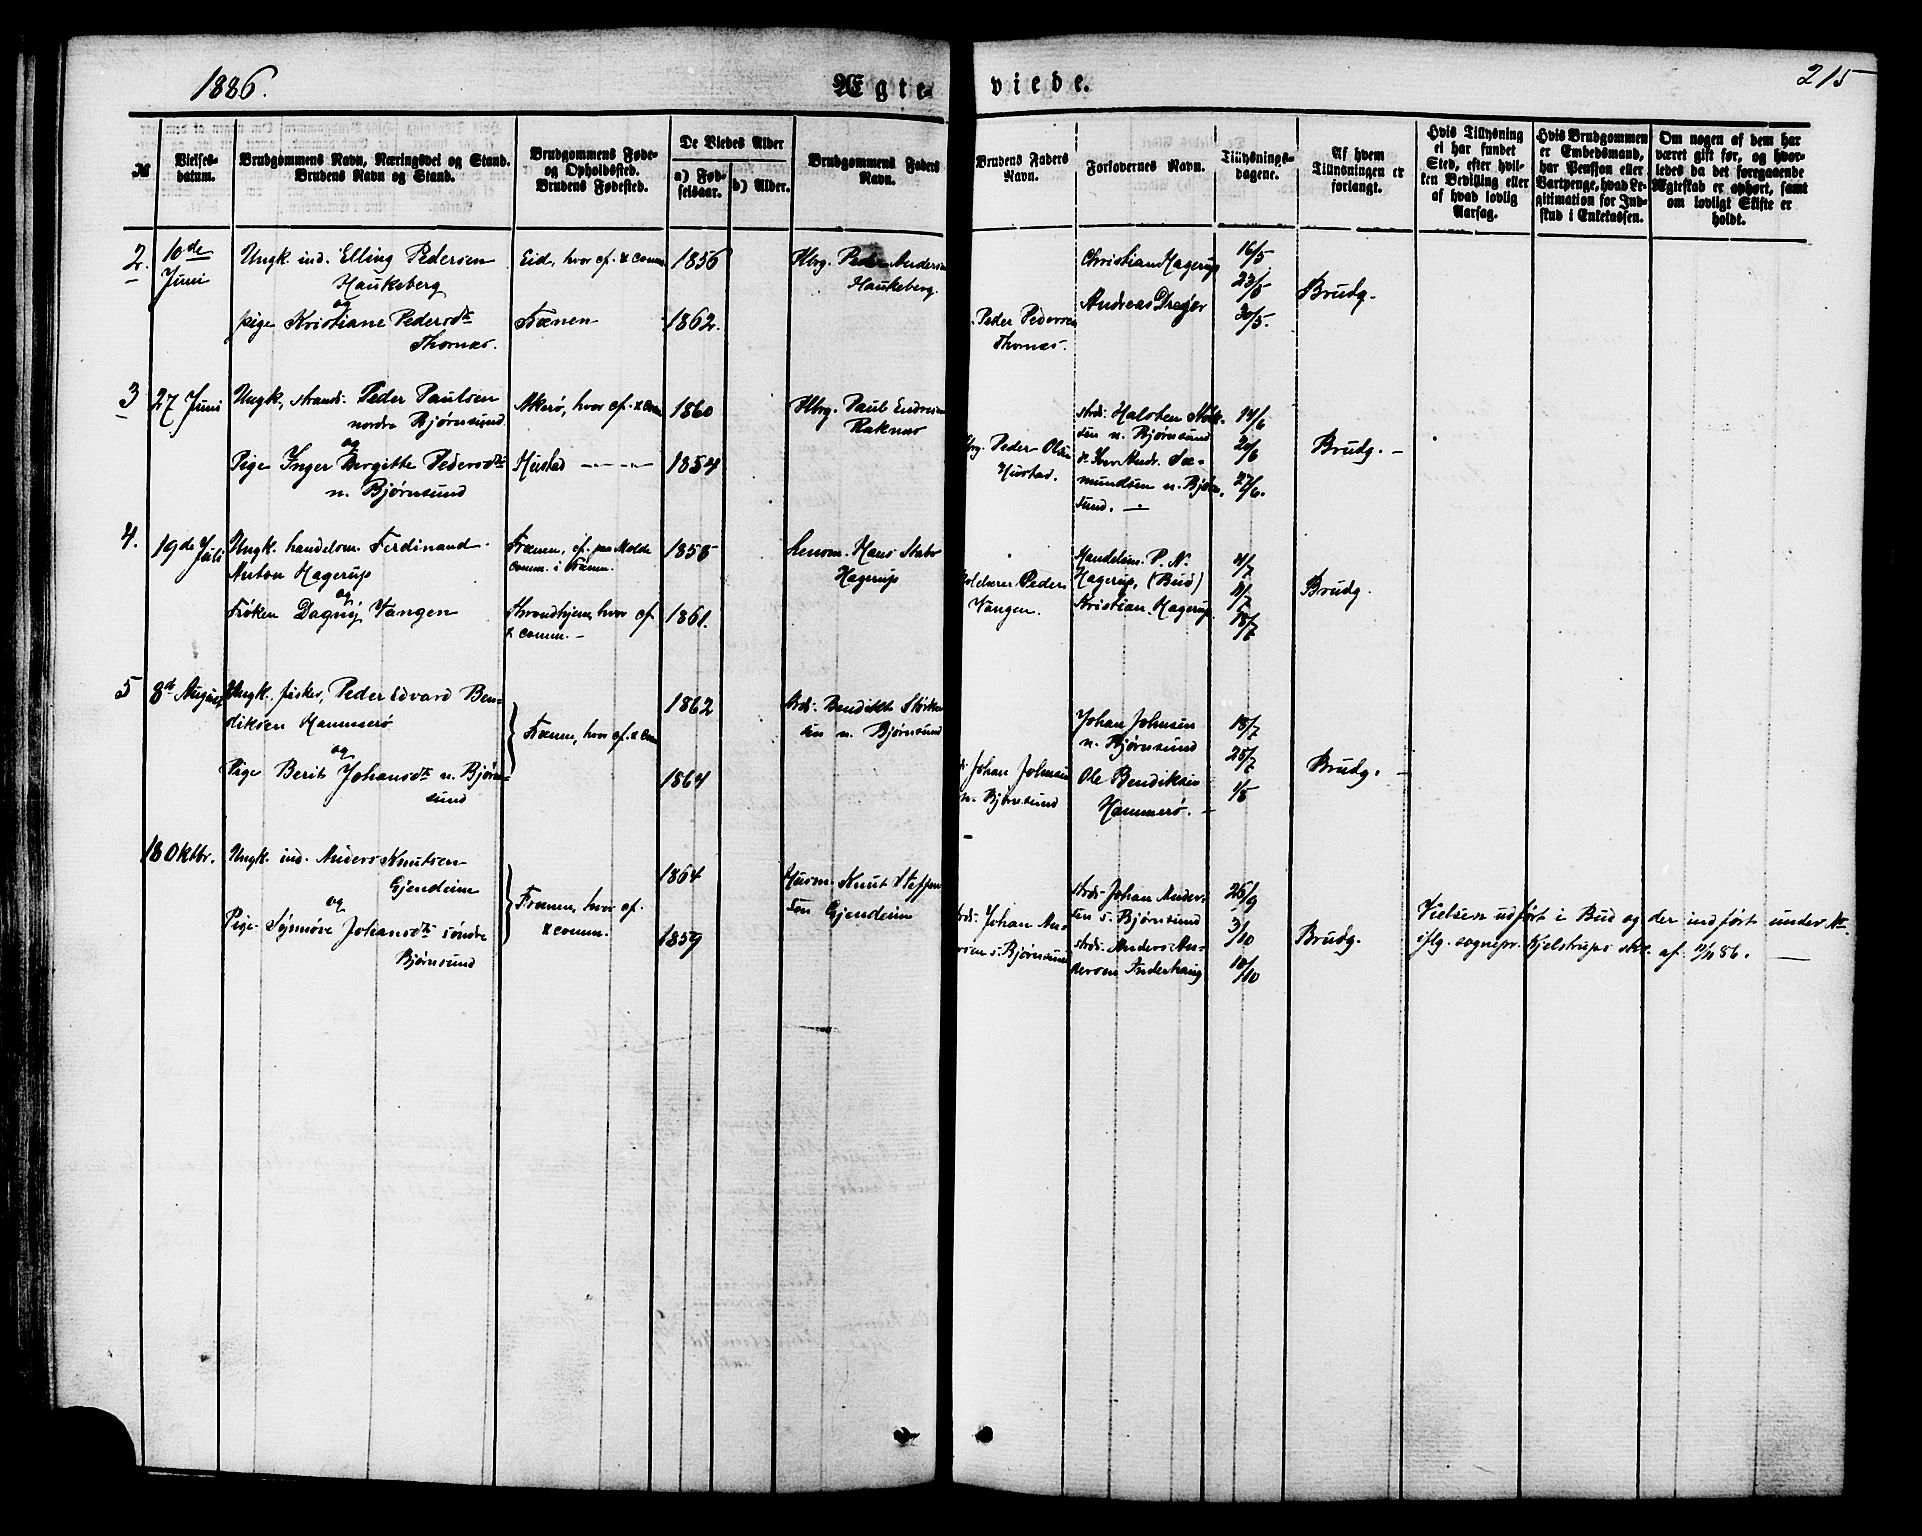 1886.
Ægte-
viede.
215
№
Vielses-
datum.
Brudgommens Navn, Næringsvei og Stand.
Brudens Navn og Stand.
Brudgommens Føde-
og Opholdsted.
Brudens Fødested.
De Viedes Alder
a) Fød-
selsaar.
b) Alder.
Brudgommens Faders
Navn.
Brudens Faders
Navn.
Forlovernes Navn.
Tillysnings-
dagene.
Af hvem
Tillysningen er
forlangt.
Hvis Tillysning
ei har fundet
Sted, efter hvil-
ken Bevilling eller
af hvad lovlig
Aarsag.
Hvis Brudgommen
er Embedsmand,
har Pension eller
Vartpenge, hvad Le-
gitimation for Ind-
skud i Enkekassen.
Om nogen af dem har
været gift før, og hvor-
ledes da det foregaaende
Ægteskab er ophørt, samt
om lovligt Skifte er
holdt.
2.
10de
Juni
Ungk. ind. Elling Pedersen
Haukeberg
og
pige Kristiane Pedersdtr
Thornæs.
Eid, hvor cf. & comm.
Frænen
1856
1862.
Hbrg. Peder Andersen
Haukeberg.
Peder Pedersen
Thornæs.
Christian Hagerup
Andreas Drejer
16/5
23/5
30/5.
Brudg.
3
27 Juni
Ungk. strands. Peder Paulsen
nordre Bjørnsund
og
Pige Inger Bergitte Pedersdtr
n. Bjørnsund
Akerø, hvor cf. & com
Hustad
1860
1854
Hbrg. Paul Endresen
Raknæs
Hbrg. Peder Olsen
Hustad.
strds. Halsten Stork-
sen n. Bjørnsund
& Iver Andr. Sæ-
mundsen n. Bjørn-
sund.
14/6
20/6
27/6.
Brudg.
4.
19de Juli
Ungk. handelsm. Ferdinand
Anton Hagerup
og
Frøken Dagny Vangen
Frænen, cf. paa Molde
comm. i Frænen.
Throndhjem, hvor cf.
& comm.
1858
1861.
Lensm. Hans Stabo
Hagerup
Peder
Vangen.
Handelsm. P. N.
Hagerup, (Bud)
Kristian Hagerup
4/7
11/7
18/7
Brudg.
5
8de August
Ungk. fisker, Peder Edvard Ben-
diksen Hammerø
og
Pige Berit Johansdtr n. Bjørn-
sund
Frænen, hvor cf. & com
1862
1864
strds. Bendikt Størker-
sen n. Bjørnsund
Johan Johnsen
n. Bjørnsund
Johan Johnsen
n. Bjørnsund
Ole Bendiksen
Hammerø.
18/7
25/7
1/8
Brudg.
18 Oktbr.
Ungk. ind. Anders Knutsen
Gjendem
og
Pige Synnøve Johansdtr søndre
Bjørnsund
Frænen, hvor cf.
& comm.
1864
1859
Husm. Knut Steffen-
sen Gjendem
strds. Johan An-
dersen s. Bjørnsund
strds. Johan Ander-
sen s. Bjørnsund
strds. Anders An-
dersen Inderhaug
26/9
3/10
10/10
Brudg.
Vielsen udført i Bud og der indført under №
iflg. sognepr. Kjelstrups skr. af 86.